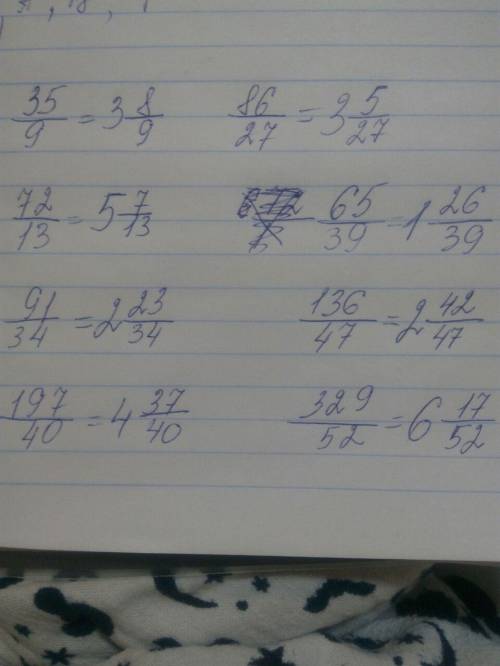 35/9 = 3 8/9    86/27 = 3 5/27
72/13 = 5 7/13    65/39 = 1 26/39
91/34 = 2 23/34    136/47 = 2 42/47
197/40 = 4 37/40    329/52 = 6 17/52